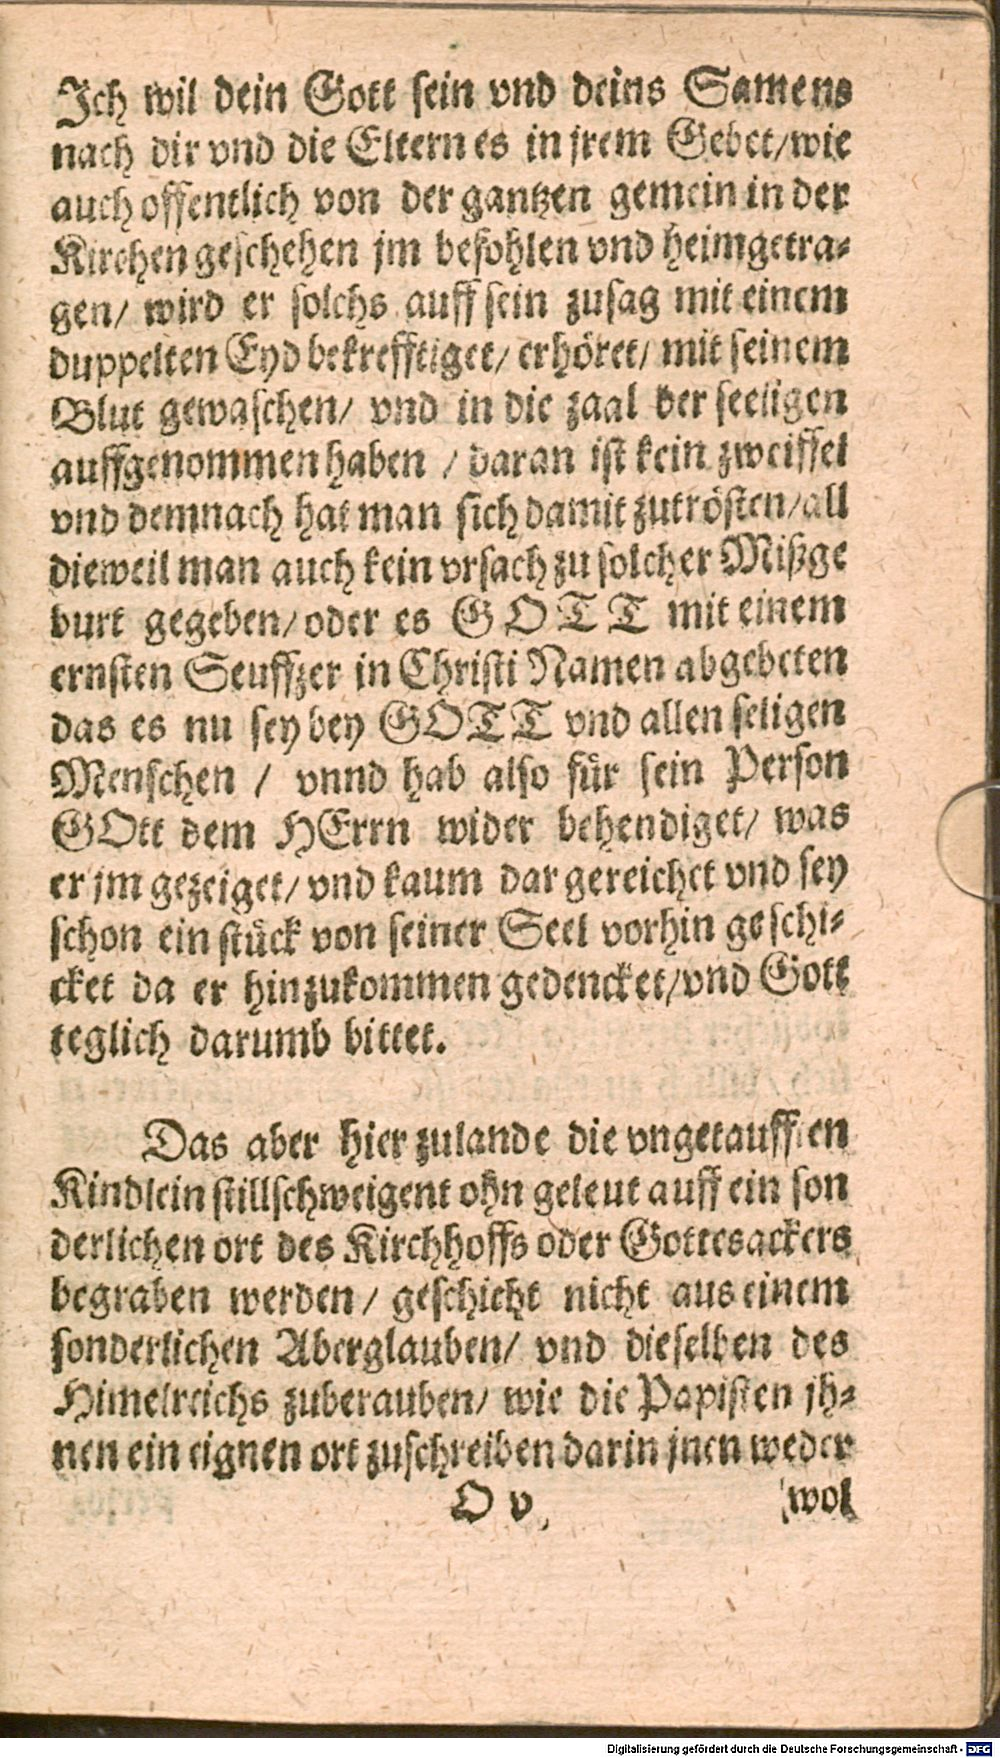 Ich wil dein Gott sein vnd deins Samens
nach dir vnd die Eltern es in jrem Gebet/wie
auch offentlich von der gantzen gemein in der
Kirchen geschehen jm befohlen vnd heimgetra-
gen/ wird er solchs auff sein zusag mit einem
duppelten Eyd bekrefftiget/ erhöret/ mit seinem
Blut gewaschen/ vnd in die zaal der seeligen
auffgenommen haben / daran ist kein zweiffel
vnd demnach hat man sich damit zutrösten/all
dieweil man auch kein vrsach zu solcher Mißge
burt gegeben/oder es GOTT mit einem
ernsten Seuffzer in Christi Namen abgebeten
das es nu sey bey GOTT vnd allen seligen
Menschen / vnnd hab also für sein Person
GOtt dem HErrn wider behendiget/ was
er jm gezeiget/ vnd kaum dar gereichet vnd sey
schon ein stück von seiner Seel vorhin geschi-
cket da er hinzukommen gedencket/vnd Gott
teglich darumb bittet.
Das aber hier zulande die vngetaufften
Kindlein stillschweigent ohn geleut auff ein son
derlichen ort des Kirchhoffs oder Gottesackers
begraben werden/ geschieht nicht aus einem
sonderlichen Aberglauben/ vnd dieselben des
Himelreichs zuberauben/ wie die Papisten jh-
nen ein eignen ort zuschreiben darin jnen weder
O v
wol
Digitalisierung gefördert durch die Deutsche Forschungsgemeinschaft - DFG